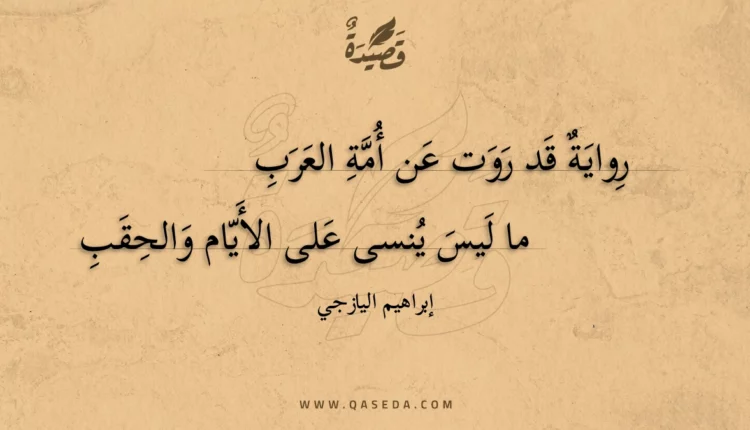 قَصِيْدَةٌ
رِوايَةٌ قَد رَوَت عَن أُمَّةِ العَرَبِ
ما لَيسَ يُنسى عَلى الأَيّام وَالحِقَبِ
إبراهيم اليازجي
WWW.QASEDA.COM